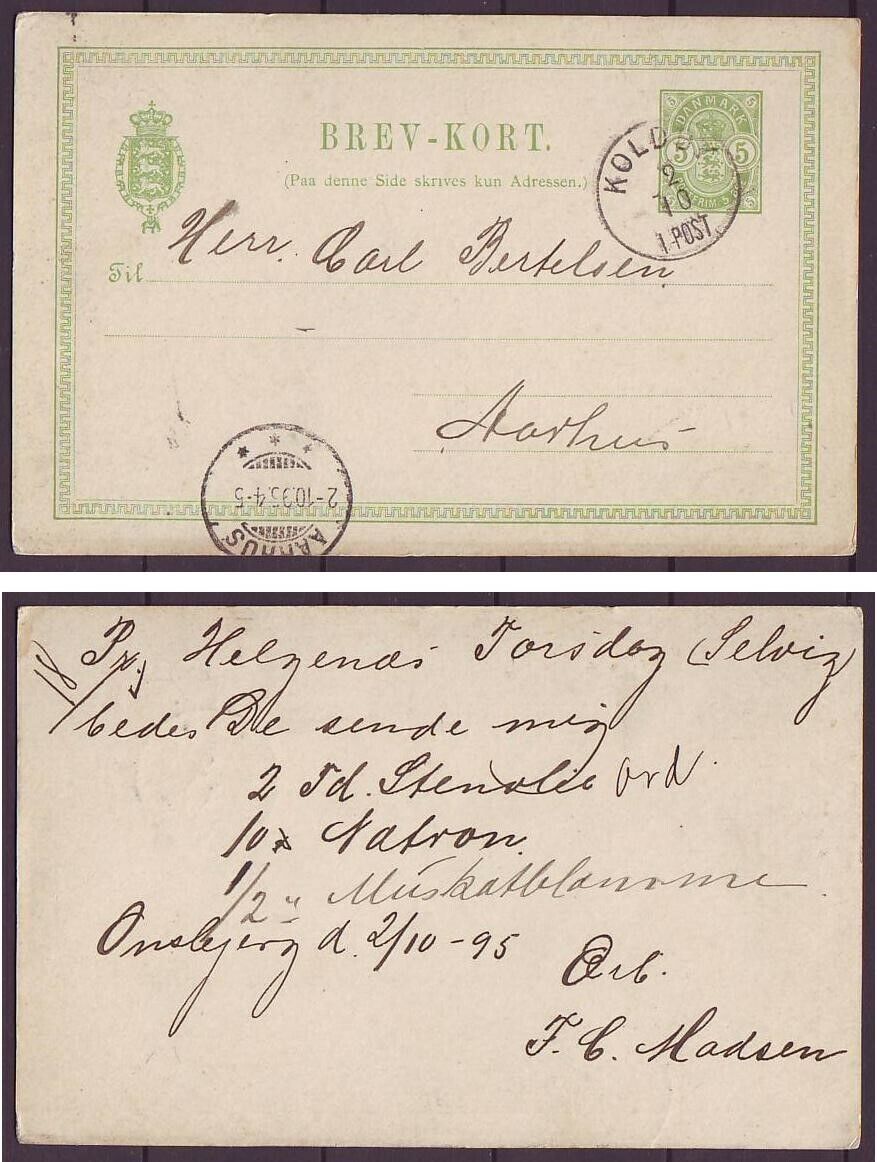 BREV-KORT.
(Paa denne Side skrives kun Adressen.)
5 5
DANMARK
5 5
KOLD
2
10
1 POST
Herr. Carl Bertelsen
Til
Aarhus
2-10.95.4-5
AARHUS
18/
Pr. Helgenæs Torsdag (Selvig)
bedes De sende mig
2 Td. Stenolie ord.
10 Natron.
1/2 " Muskatblomme
Onsbjerg d. 2/10-95
Erb.
F. C. Madsen